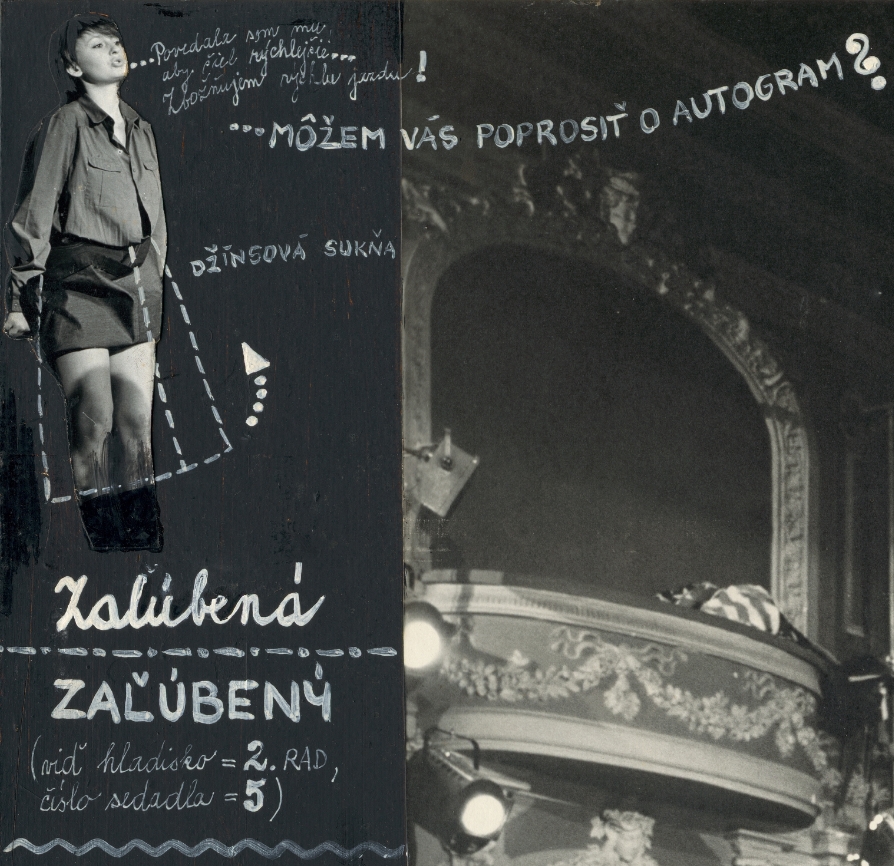 ...Povedala som mu,
aby šiel rýchlejšie...
Zbožňujem rýchlu jazdu!
...MÔŽEM VÁS POPROSIŤ O AUTOGRAM?
DŽÍNSOVÁ SUKŇA
Zaľúbená
ZAĽÚBENÝ
(viď hladisko = 2. RAD,
číslo sedadla = 5)